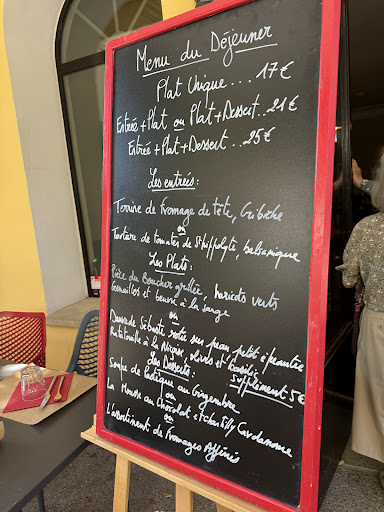 Menu du Déjeuner
Plat Unique... 17€
Entrée + Plat ou Plat + Dessert..21€
Entrée + Plat + Dessert..25€
Les entrées:
Terrine de fromage de tête, Gribiche
ou
Tartare de tomates de St hippolyte, balsamique
Les Plats:
Pièce du Boucher grillée, haricots verts
Grenailles et beurre à la sauge
ou
Darne de Sébaste rotie sur peau, petite piquante
Ratatouille à la Niçoise, olives et basilic
Supplément 5€
Les Desserts:
Soupe de Pastèque au Gingembre
ou
La Mousse au Chocolat et Chantilly Cardamome
ou
L'assortiment de fromages Affinés